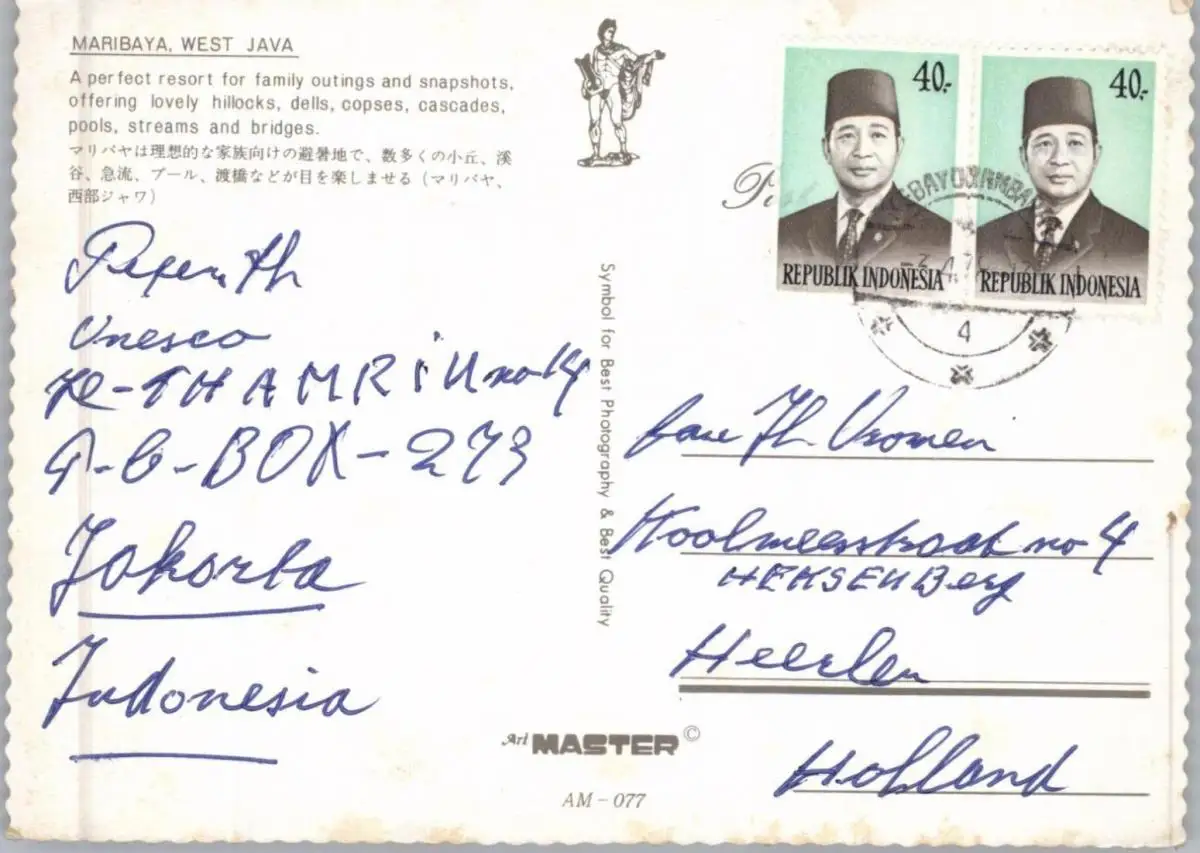 MARIBAYA, WEST JAVA
A perfect resort for family outings and snapshots,
offering lovely hillocks, dells, copses, cascades,
pools, streams and bridges.
マリバヤは理想的な家族向けの避暑地で、数多くの小丘、渓
谷、急流、プール、渡橋などが目を楽しませる（マリバヤ、
西部ジャワ）
Unesco
THAMRiN no 14
BOX - 273
Jakarta
Indonesia
Symbol for Best Photography & Best Quality
Art MASTER ©
AM - 077
40.-
REPUBLIK INDONESIA
40.-
REPUBLIK INDONESIA
4
fam Th. Vromen
Koolmeesstraat no 4
HEKSENBerg
Heerlen
Holland